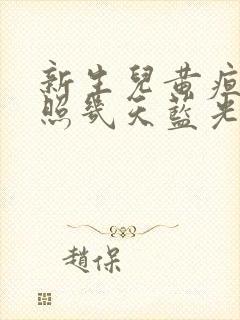 新生兒黃疸
照幾天藍光
趙保